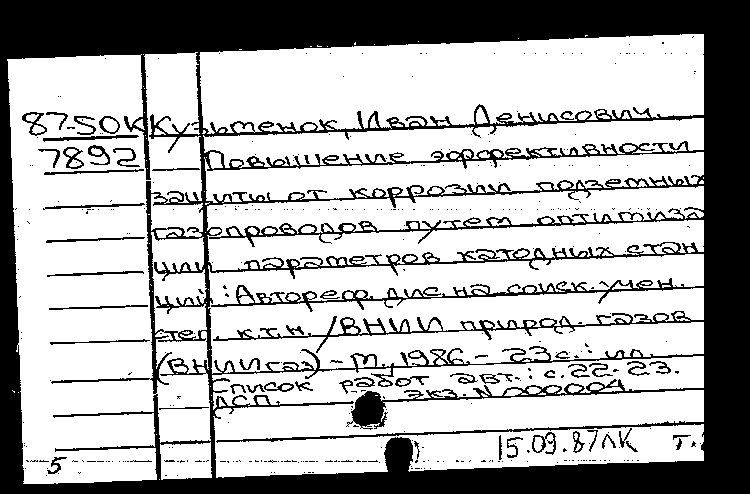 87-5ОК Кузьменок, Иван Денисович.
7892 Повышение эффективности
защиты от коррозии подземных
газопроводов путем оптимиза
ции параметров катодных стан
ций : Автореф. дис. на соиск. учен.
степ. к.т.н. /ВНИИ природ. газов
(ВНИИгаз) - М., 1986. - 23 с. : ил.
Список работ авт.: с. 22-23.
ДСП. Экз. N 000004
15.09.87 ЛК т.
5